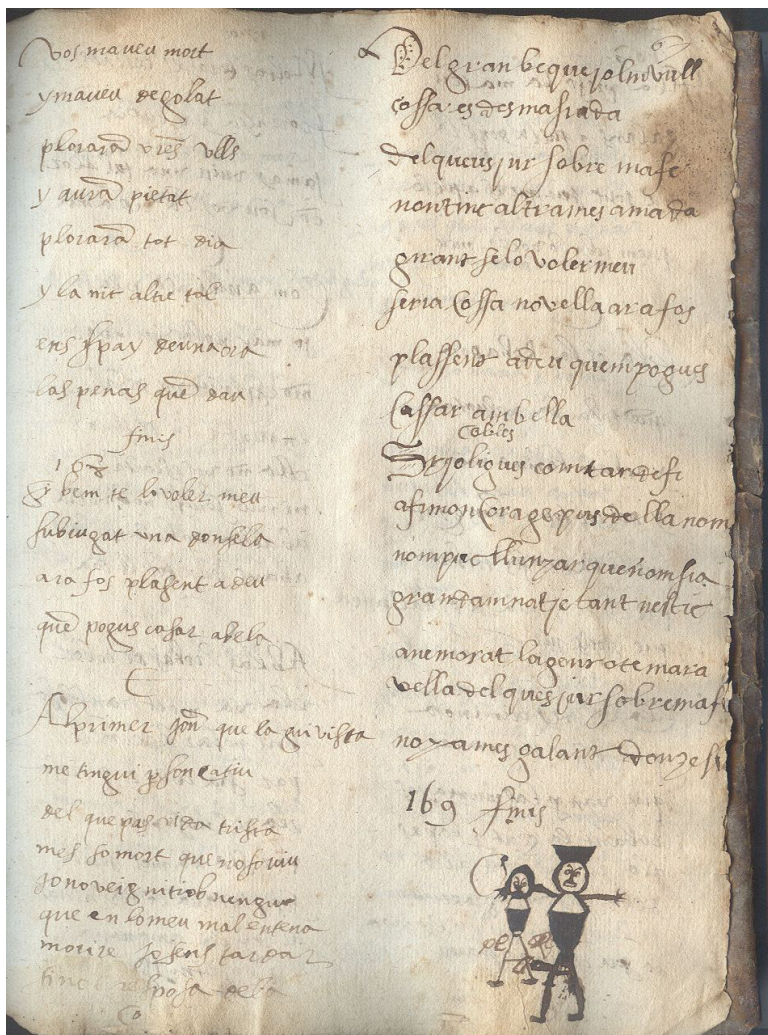 Vos maveu mort
y maveu degolat
plorarã vrẽs ulls
y aurã pietat
plorarã tot dia
y la nit altre tal
en spay de una ora
las penas que dau
finis
168
Si bem te lo voler meu
subiugat una donsela
ara fos plasent a deu
quẽ pogues casar ab ela
Al primer jorn que la gui vista
me tingui per son catiu
del que pas vida trista
mes so mort que no so viu
jo no veig
que en lo meu mal entena
morire
resposta dela
Del gran be que jo li vull
cossa es desmasiada
del queus jur sobre ma fe
non tinc altra mes amada
girant se lo voler meu
seria cossa novella ara fos
plassent a deu quem pogues
cassar am bella
cobles
Si jo ligues com tar de fi
a fi mon corage pus de lla nom
nom puc llunyar que nom sia
gran damnatje tant nestic
anemorat la gens ote mara
vella del ques jur sobre ma f
no y a mes galant donze
169 finis